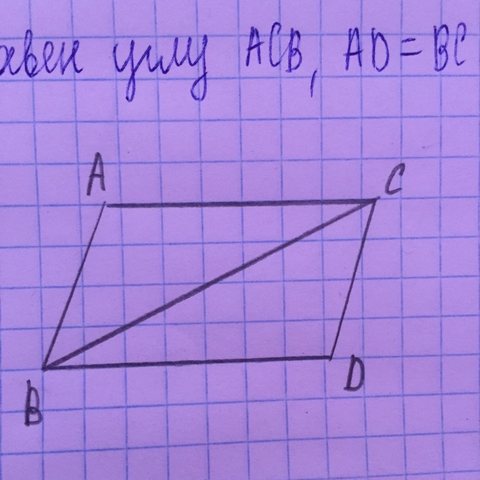 авен углу ACB, AD=BC
A
C
B
D